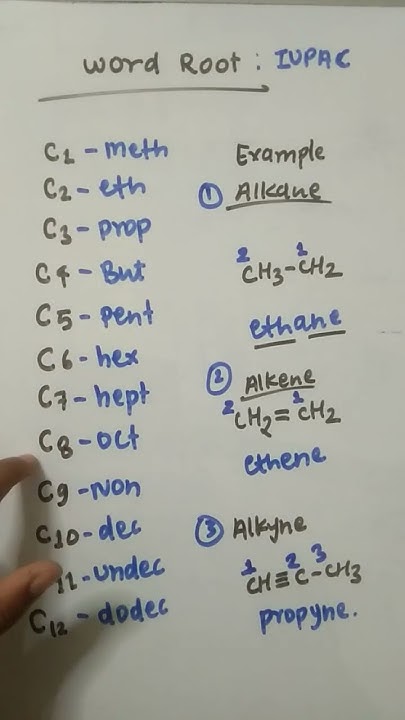 Word Root : IUPAC
C1 - meth
C2 - eth
C3 - prop
C4 - But
C5 - pent
C6 - hex
C7 - hept
C8 - oct
C9 - Non
C10 - dec
11 - undec
C12 - dodec
Example
① Alkane
2 1
CH3-CH2
ethane
② Alkene
2 1
CH2=CH2
ethene
③ Alkyne
1 2 3
CH≡C-CH3
propyne.